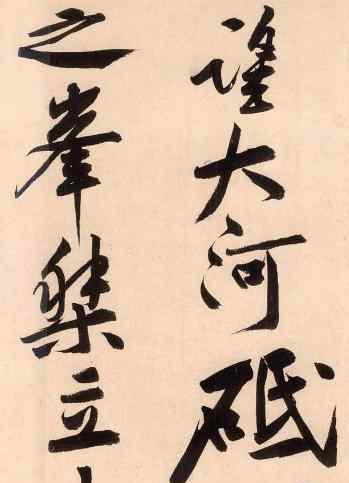 望大河砥
之峯桀立